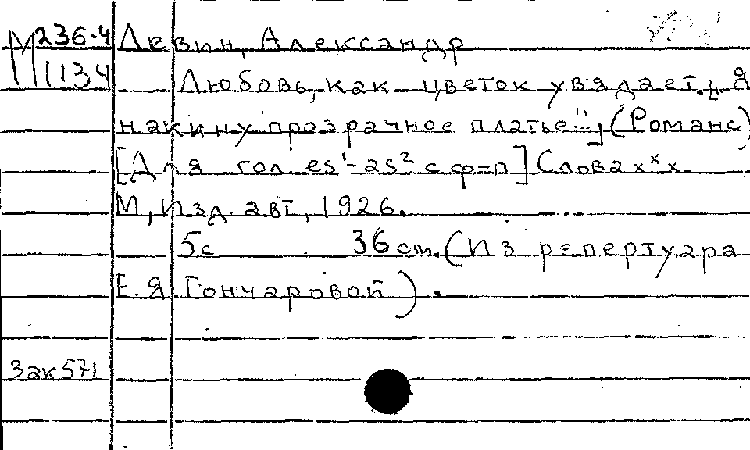 М 236-4 Левин, Александр
1134 Любовь, как цветок увядает. [„Я
накину прозрачное платье"...] (Романс)
[Для гол. es¹-as² с ф=п] Слова х х х.
М, Изд. авт, 1926.
5с 36 см. (Из репертуара
Е.Я Гончаровой).
Зак 571